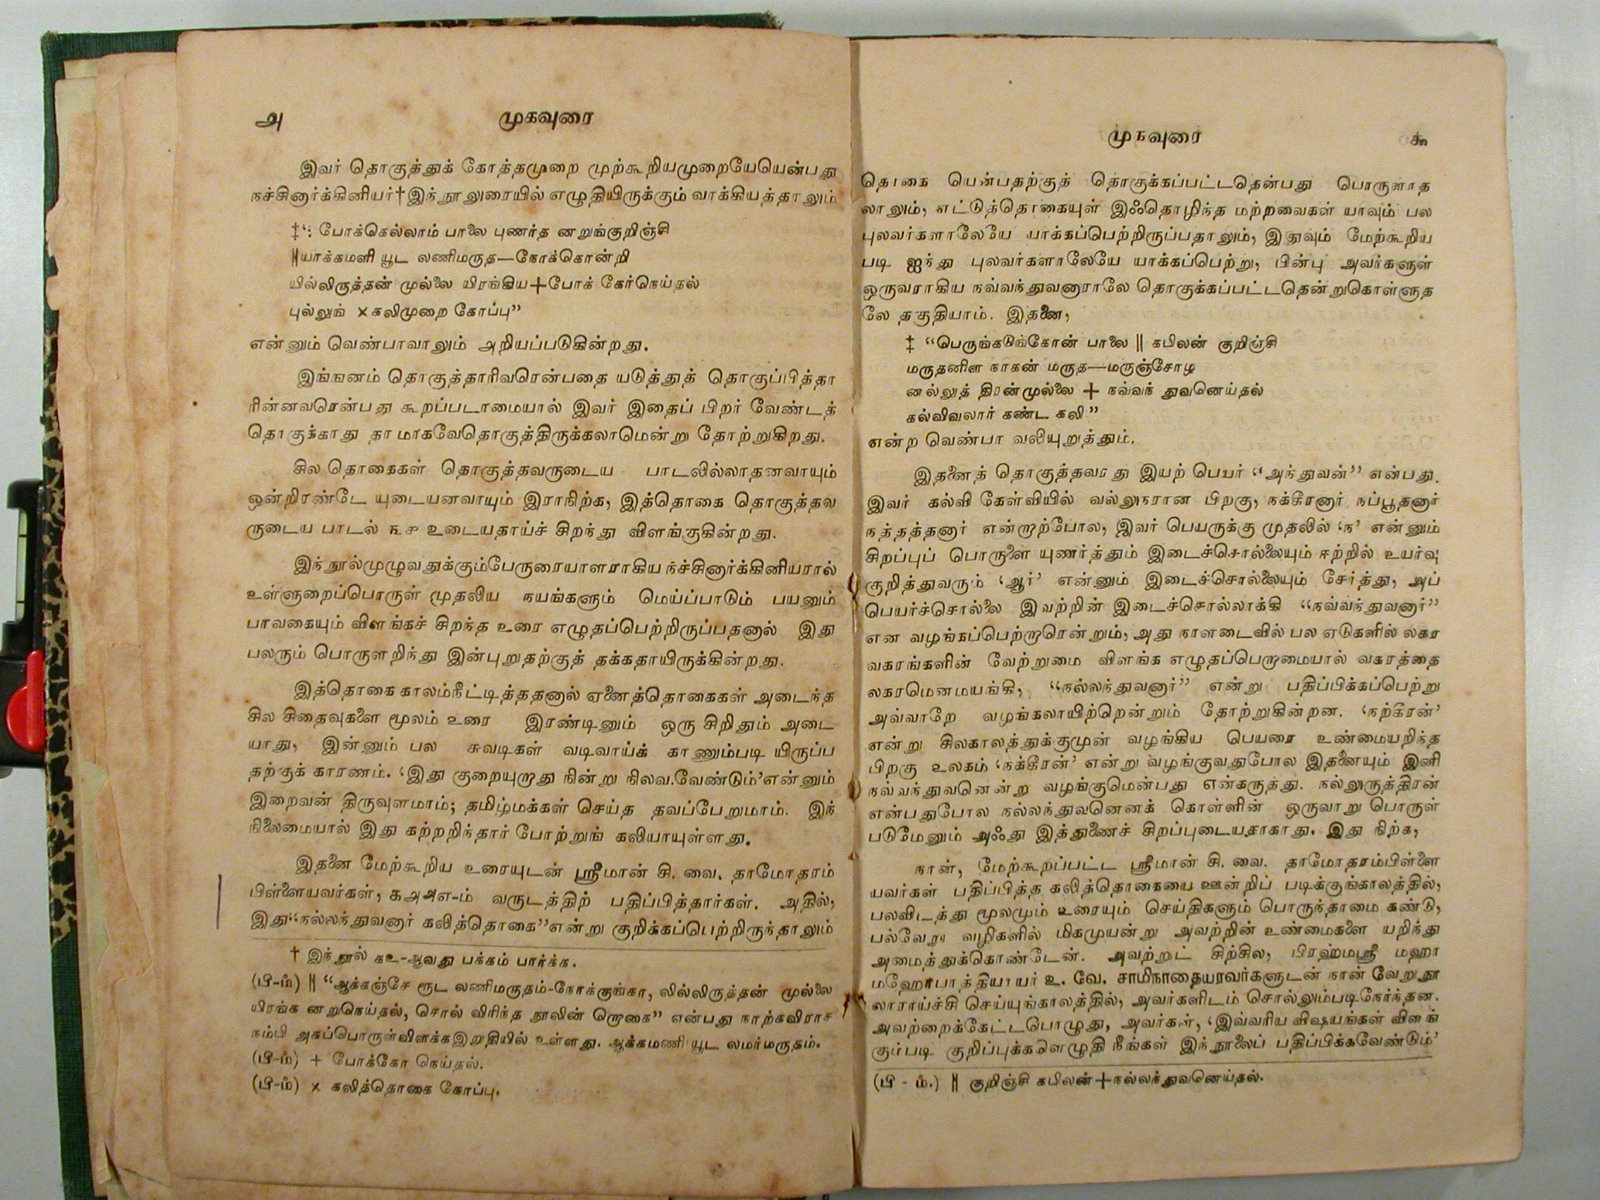 அ முகவுரை
இவர் தொகுத்துக் கோத்தமுறை முற்கூறியமுறையேயென்பது
நச்சினார்க்கினியர்†இந்நூலுரையில் எழுதியிருக்கும் வாக்கியத்தாலும்
‡“: போக்கெல்லாம் பாலை புணர்த னறுங்குறிஞ்சி
‖யாக்கமளி யூட லணிமருத—நோக்கொன்றி
யில்லிருத்தன் முல்லை யிரங்கிய+போக் கேர்நெய்தல்
புல்லுங் ×கலிமுறை கோப்பு”
என்னும் வெண்பாவாலும் அறியப்படுகின்றது.
இங்ஙனம் தொகுத்தாரிவரென்பதை யடுத்துத் தொகுப்பித்தா
ரின்னவரென்பது கூறப்படாமையால் இவர் இதைப் பிறர் வேண்டத்
தொகுக்காது தாமாகவேதொகுத்திருக்கலாமென்று தோற்றுகிறது.
சில தொகைகள் தொகுத்தவருடைய பாடலில்லாதனவாயும்
ஒன்றிரண்டே யுடையனவாயும் இராநிற்க, இத்தொகை தொகுத்தவ
ருடைய பாடல் ௩௩ உடையதாய்ச் சிறந்து விளங்குகின்றது.
இந்நூல்முழுவதுக்கும்பேருரையாளராகிய நச்சினார்க்கினியரால்
உள்ளுறைப்பொருள் முதலிய நயங்களும் மெய்ப்பாடும் பயனும்
பாவகையும் விளங்கச் சிறந்த உரை எழுதப்பெற்றிருப்பதனால் இது
பலரும் பொருளறிந்து இன்புறுதற்குத் தக்கதாயிருக்கின்றது.
இத்தொகை காலம்நீட்டித்ததனால் ஏனைத்தொகைகள் அடைந்த
சில சிதைவுகளை மூலம் உரை இரண்டினும் ஒரு சிறிதும் அடை
யாது, இன்னும் பல சுவடிகள் வடிவாய்க் காணும்படி யிருப்ப
தற்குக் காரணம். ‘இது குறையுறாது நின்று நிலவ.வேண்டும்’என்னும்
இறைவன் திருவுளமாம்; தமிழ்மக்கள் செய்த தவப்பேறுமாம். இந்
நிலைமையால் இது கற்றறிந்தார் போற்றுங் கலியாயுள்ளது.
இதனை மேற்கூறிய உரையுடன் ஸ்ரீமான் சி. வை. தாமோதரம்
பிள்ளையவர்கள், ௧௮௮௭-ம் வருடத்திற் பதிப்பித்தார்கள். அதில்,
இது“நல்லந்துவனார் கலித்தொகை”என்று குறிக்கப்பெற்றிருந்தாலும்
† இந்நூல் ௧௨-ஆவது பக்கம் பார்க்க.
(பி-ம்) ‖ “ஆக்கஞ்சே ரூட லணிமருதம்-நோக்குங்கா, லில்லிருத்தன் முல்லை
யிரங்க னறுநெய்தல், சொல் விரிந்த நூலின் றொகை” என்பது நாற்கவிராச
நம்பி அகப்பொருள்விளக்கஇறுதியில் உள்ளது. ஆக்கமணி யூட லமர்மருதம்.
(பி-ம்) + போக்கோ நெய்தல்.
(பி-ம்) × கலித்தொகை கோப்பு.
முகவுரை ௯
தொகை யென்பதற்குத் தொகுக்கப்பட்டதென்பது பொருளாத
லாலும், எட்டுத்தொகையுள் இஃதொழிந்த மற்றவைகள் யாவும் பல
புலவர்களாலேயே யாக்கப்பெற்றிருப்பதாலும், இதுவும் மேற்கூறிய
படி ஐந்து புலவர்களாலேயே யாக்கப்பெற்று, பின்பு அவர்களுள்
ஒருவராகிய நவ்வந்துவனாராலே தொகுக்கப்பட்டதென்றுகொள்ளுத
லே தகுதியாம். இதனை,
‡ “பெருங்கடுங்கோன் பாலை ‖ கபிலன் குறிஞ்சி
மருதனிள நாகன் மருத—மருஞ்சோழ
னல்லுத் திரன்முல்லை + நவ்வந் துவனெய்தல்
கல்விவலார் கண்ட கலி”
என்ற வெண்பா வலியுறுத்தும்.
இதனைத் தொகுத்தவரது இயற் பெயர் “அந்துவன்” என்பது.
இவர் கல்வி கேள்வியில் வல்லுநரான பிறகு, நக்கீரனார் நப்பூதனார்
நத்தத்தனார் என்றாற்போல, இவர் பெயருக்கு முதலில் ‘ந’ என்னும்
சிறப்புப் பொருளை யுணர்த்தும் இடைச்சொல்லையும் ஈற்றில் உயர்வு
குறித்துவரும் ‘ஆர்’ என்னும் இடைச்சொல்லையும் சேர்த்து, அப்
பெயர்ச்சொல்லை இவற்றின் இடைச்சொல்லாக்கி “நவ்வந்துவனார்”
என வழங்கப்பெற்றாரென்றும், அது நாளடைவில் பல ஏடுகளில் லகர
வகரங்களின் வேற்றுமை விளங்க எழுதப்பெறாமையால் வகரத்தை
லகரமெனமயங்கி, “நல்லந்துவனார்” என்று பதிப்பிக்கப்பெற்று
அவ்வாறே வழங்கலாயிற்றென்றும் தோற்றுகின்றன. ‘நற்கீரன்’
என்று சிலகாலத்துக்குமுன் வழங்கிய பெயரை உண்மையறிந்த
பிறகு உலகம் ‘நக்கீரன்’ என்று வழங்குவதுபோல இதனையும் இனி
நவ்வந்துவனென்ற வழங்குமென்பது என்கருத்து. நல்லுருத்திரன்
என்பதுபோல நல்லந்துவனெனக் கொள்ளின் ஒருவாறு பொருள்
படுமேனும் அஃது இத்துணைச் சிறப்புடையதாகாது. இது நிற்க,
நான், மேற்கூறப்பட்ட ஸ்ரீமான் சி. வை. தாமோதரம்பிள்ளை
யவர்கள் பதிப்பித்த கலித்தொகையை ஊன்றிப் படிக்குங்காலத்தில்,
பலவிடத்து மூலமும் உரையும் செய்திகளும் பொருந்தாமை கண்டு,
பல்வேறு வழிகளில் மிகமுயன்று அவற்றின் உண்மைகளை யறிந்து
அமைத்துக்கொண்டேன். அவற்றுட் சிற்சில, பிரஹ்மஸ்ரீ மஹா
மஹோபாத்தியாயர் உ. வே. சாமிநாதையரவர்களுடன் நான் வேறுநூ
லாராய்ச்சி செய்யுங்காலத்தில், அவர்களிடம் சொல்லும்படிநேர்ந்தன.
அவற்றைக்கேட்டபொழுது, அவர்கள், ‘இவ்வரிய விஷயங்கள் விளங்
கும்படி குறிப்புக்களெழுதி நீங்கள் இந்நூலைப் பதிப்பிக்கவேண்டும்’
(பி - ம்.) ‖ குறிஞ்சி கபிலன்+நல்லந்துவனெய்தல்.